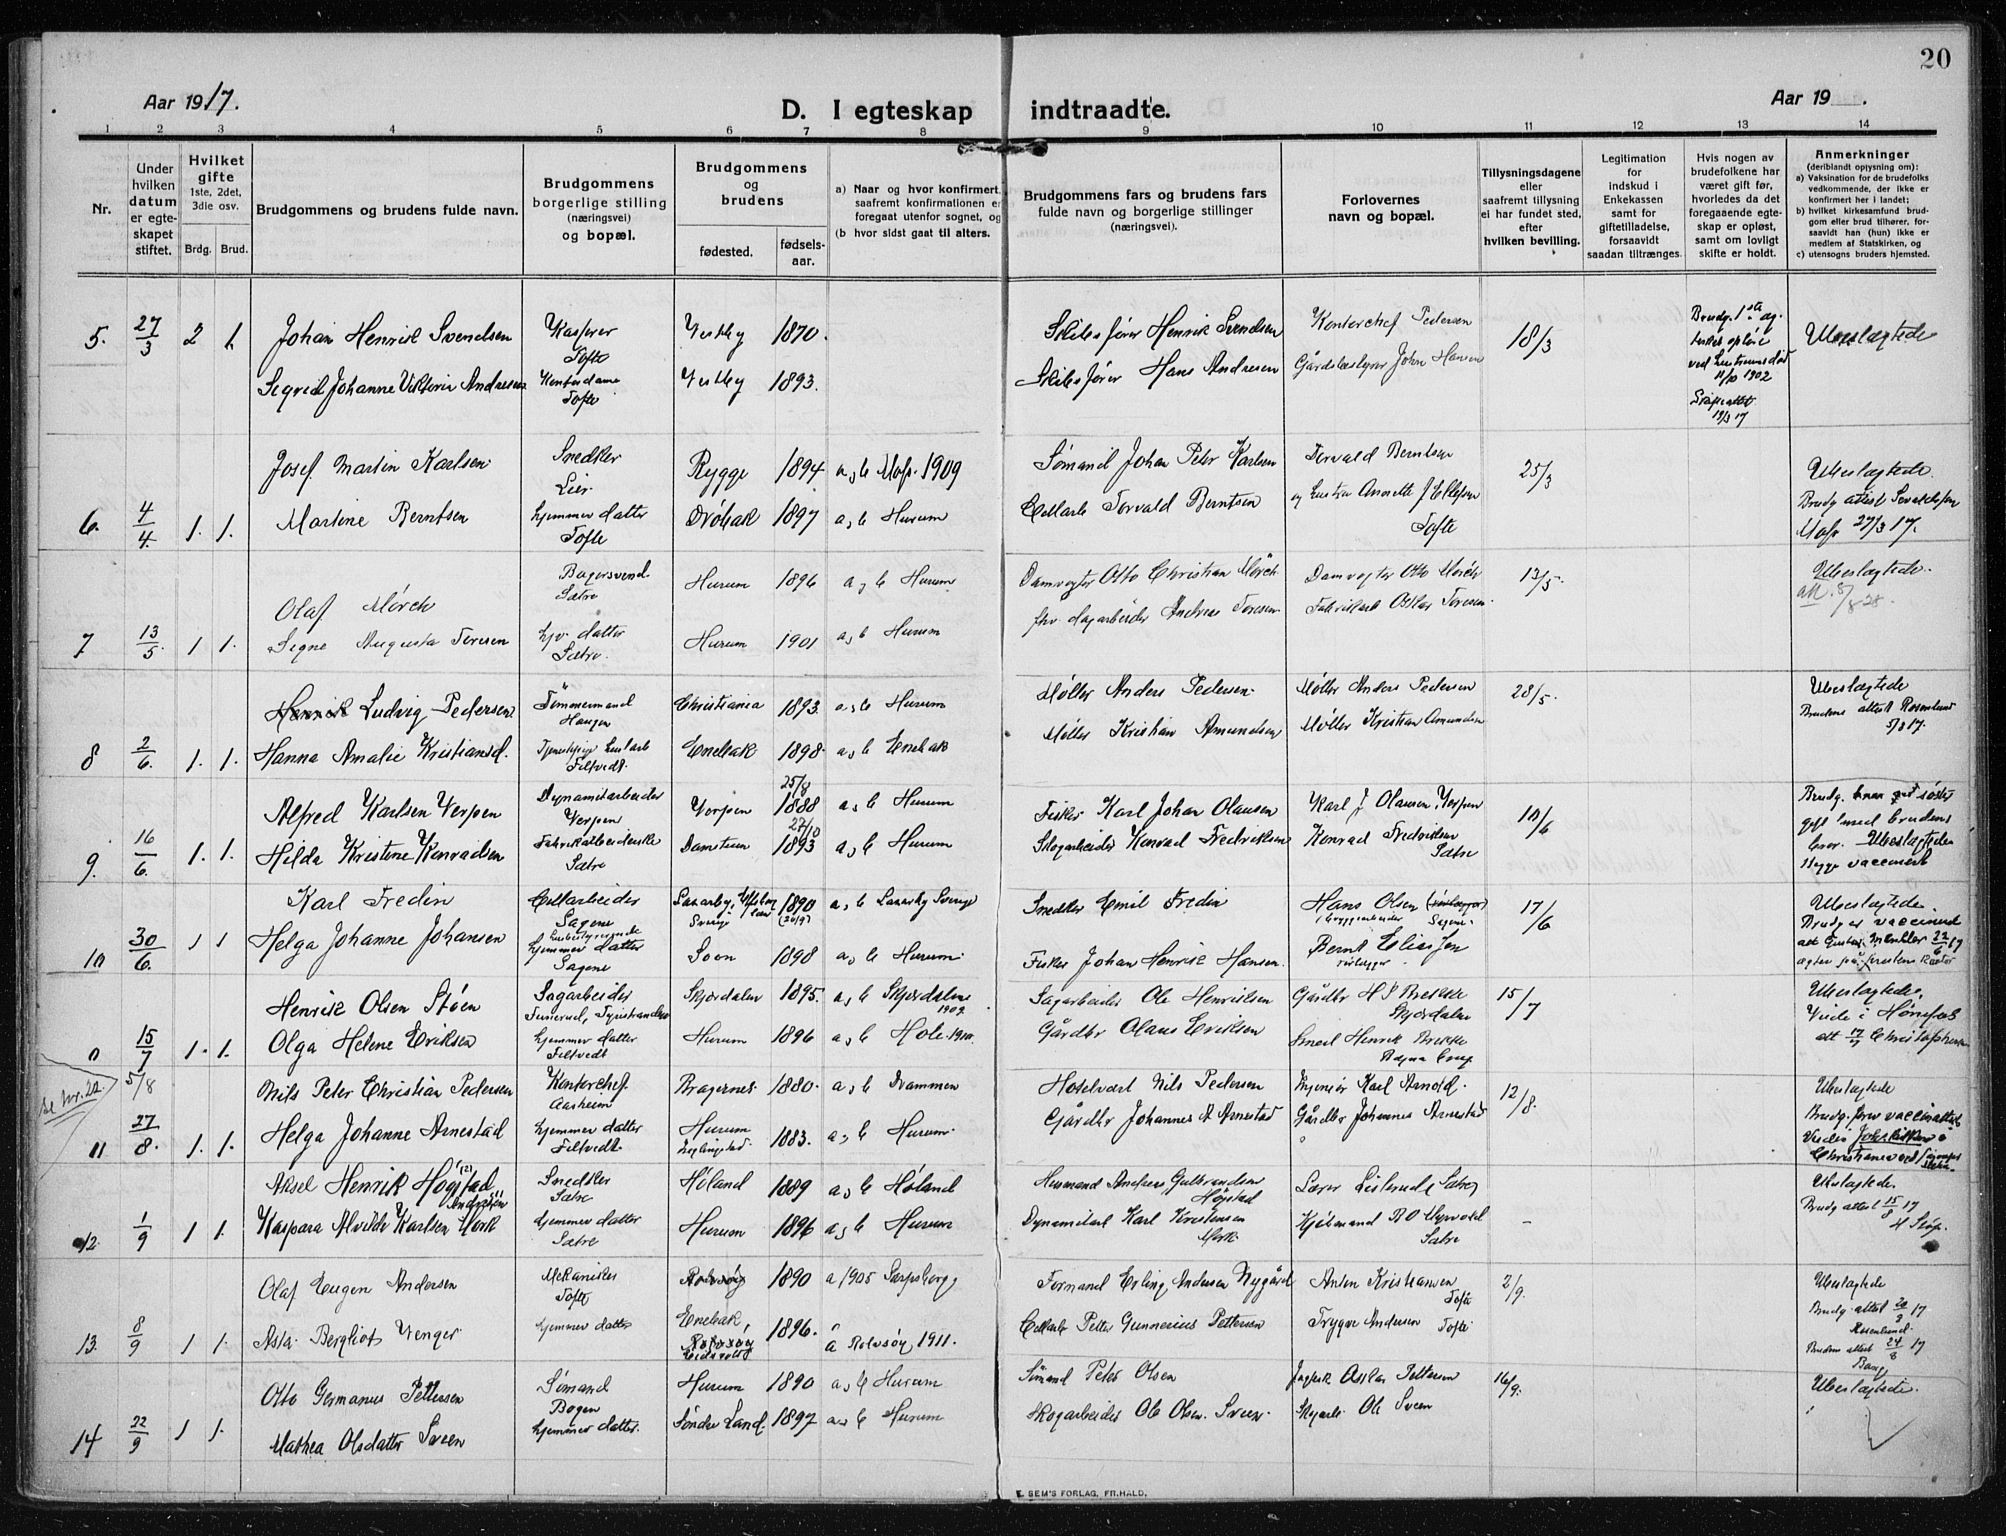 20
Aar 1917.
D. I egteskap indtraadte.
Aar 19 .
1 2 3 4 5 6 7 8 9 10 11 12 13 14
Nr.
Under hvilken datum er egteskapet stiftet.
Hvilket gifte
1ste, 2det, 3die osv.
Brdg. Brud.
Brudgommens og brudens fulde navn.
Brudgommens borgerlige stilling (næringsvei) og bopæl.
Brudgommens og brudens
fødested.
fødsels-aar.
a) Naar og hvor konfirmert, saafremt konfirmationen er foregaat utenfor sognet, og
(b hvor sidst gaat til alters.
Brudgommens fars og brudens fars fulde navn og borgerlige stillinger (næringsvei).
Forlovernes navn og bopæl.
Tillysningsdagene eller saafremt tillysning ei har fundet sted, efter hvilken bevilling.
Legitimation for indskud i Enkekassen samt for giftetilladelse, forsaavidt saadan tiltrænges.
Hvis nogen av brudefolkene har været gift før, hvorledes da det foregaaende egteskap er opløst, samt om lovligt skifte er holdt.
Anmerkninger (deriblandt opjysning om):
a) Vaksination for de brudefolks vedkommende, der ikke er konfirmert her i landet;
b) hvilket kirkesamfund brudgom eller brud tilhører, forsaavidt han (hun) ikke er medlem af Statskirken, og
c) utensogns bruders hjemsted.
5. 27/3 2 1. Johan Henrik Svendsen Kasserer Tofte Vestby 1870. Skibsfører Henrik Svendsen Kontorchef Pedersen 18/3 Ubeslægtede
Sigrid Johanne Viktoria Andresen Kontordame Tofte Vestby 1893. Skibsfører Hans Andresen Gårdsbestyrer John Hansen
11/10 1902
Skifteattest 19/3 17
Josef Martin Karlsen Snedker Lier Rygge 1894 a, b Moss 1909 Sømand Johan Peter Karlsen Torvald Berntsen 25/3 Ubeslægtede.
6. 4/4. 1. 1. Martine Berntsen hjemmev. datter Tofte Drøbak 1897 a, b Hurum Cellarb Torvald Berntsen og hustru Annette J Ellefsen Tofte
Moss 27/3 17.
Olaf Mørch Bagersvend Sætre Hurum 1896 a, b Hurum Damvogter Otto Christian Mörch Damvogter Otto Mörch 13/5. Ubeslægtede.
att. 8/8 28.
7 13/5. 1 1. Signe Augusta Toresen hjv. datter Sætre. Hurum 1901 a, b Hurum fhv dagarbeider Andreas Toresen Fabrikarb Oskar Toresen.
Henrik Ludvig Pedersen. Tömmermand Haugen Christiania 1893. a, b Hurum Møller Anders Pedersen Møller Anders Pedersen 28/5. Ubeslægtede
Brudens attest Rosenlund 5/3 17.
8 2/6. 1. 1. Hanna Amalie Kristiansd. Filtvedt. Enebak 1898. a, b Enebak Møller Kristian Amundsen Møller Kristian Amundsen
Alfred Karlsen Verpen Dynamitarbeider Verpen Verpen 25/8 1888 a, b Hurum Fisker Karl Johan Olausen Karl J Olausen, Verpen 10/6
9. 16/6. 1. 1. Hilda Kristine Konradsen Fabrikarbeiderske Sætre 27/10 1893 a, b Hurum Skogarbeider Konrad Fredriksen Konrad Fredriksen Sætre
gift med brudens bror. Ubeslægtede
Begge vaccinert
Karl Fredin Cellarbeider Sagene Sverige 1890 (20/9) Snedker Emil Fredin Hans Olsen Bryggearbeider Sagene 17/6 Ubeslægtede.
10 30/6. 1 1 Helga Johanne Johansen hjemmev datter Sagene Soon 1898 a, b Hurum. Fisker Johan Henrik Hansen. Bernt Eliassen
Brudg er vaccinert
Henrik Olsen Støen Sagarbeider Skjørdalen 1895. a, b Skjørdalen 1909. Sagarbeider Ole Henriksen Gårdbr H S Brekke Skjørdalen 15/7 Ubeslægtede.
0 15/7 1. 1. Olga Helene Eriksen hjemmev datter Filtvedt Hurum 1896 a, b Hole 1910. Gårdbr Olaus Eriksen Smed Henrik Brekke
Viede i Hönefos
se nr. 22. 5/8 Nils Peter Christian Pedersen Kontorchef Aasheim Bragernes. 1880. a, b Drammen Hotelvært Nils Pedersen Ingeniør Karl Arnold. 12/8. Ubeslægtede
11 27/8. 1. 1. Helga Johanne Arnestad hjemmev datter Filtvedt. Hurum 1883. a, b Hurum. Gårdbr Johannes A Arnestad Gårdbr Johannes Arnestad
Aksel Henrik Högstad Andersen Snedker Sætre Høland 1889 a, b Høland Husmand Andreas Gulbrandsen Högstad Lærer Sætre Ubeslægtede.
12. 1/9 1 1 Kaspara Alvilde Karlsen Mörk hjemmev datter Sætre Hurum 1896 a, b Hurum Dynamitarb Karl Kristensen Mörk. Kjöbmand B O Myrvold Sætre -
Brudg attest 15/8 17
Olaf Eugen Andersen Mekaniker Tofte Rolvsøy 1890 a 1905 Sarpsborg Formand Erling Andersen Nygård Anton Kristiansen Tofte 2/9. Ubeslægtede
Brudg. attest 20/3 17 Rosenlund.
13. 8/9 1 1. Asta Bergliot Wenger hjemmev datter Enebak Rolvsöy 1896. a Rolvsöy 1911. Cellarb Petter Gunnerius Pettersen Trygve Andersen Tofte
Brudens attest 24/8 17 Bang
Otto Germanus Pettersen Sömand Bogen Hurum 1890 a, b Hurum Sömand Peter Olsen Oskar Pettersen 16/9. Ubeslægtede.
14 22/9 1 1. Mathea Olsdatter Sveen hjemmev datter. Søndre Land. 1897 a, b Hurum Skogarbeider Ole Olsen Sveen. Skogarb. Ole Sveen
E. SEM'S FORLAG, FR.HALD.